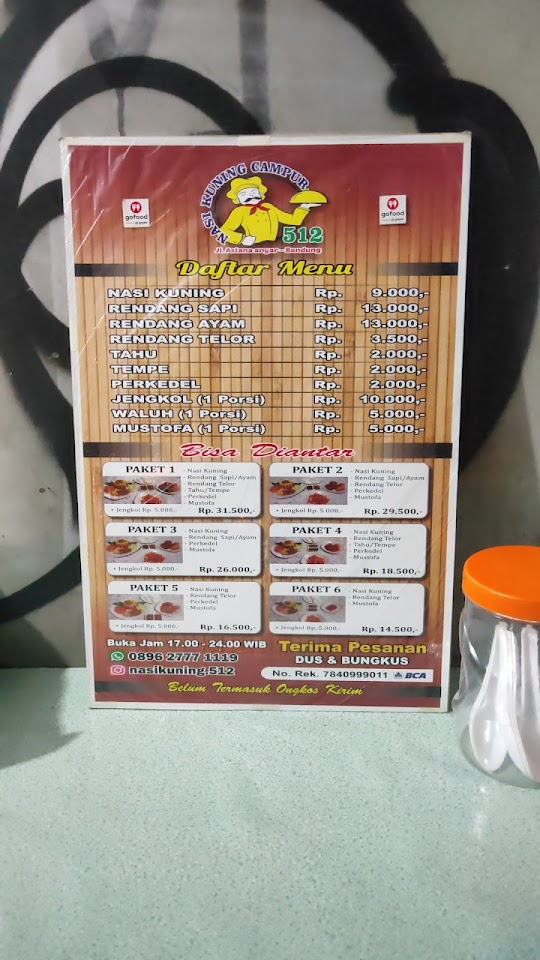 NASI KUNING CAMPUR
512
Jl. Astana anyar - Bandung
gofood
gofood
Daftar Menu
NASI KUNING Rp. 9.000,-
RENDANG SAPI Rp. 13.000,-
RENDANG AYAM Rp. 13.000,-
RENDANG TELOR Rp. 3.500,-
TAHU Rp. 2.000,-
TEMPE Rp. 2.000,-
PERKEDEL Rp. 2.000,-
JENGKOL (1 Porsi) Rp. 10.000,-
WALUH (1 Porsi) Rp. 5.000,-
MUSTOFA (1 Porsi) Rp. 5.000,-
Bisa Diantar
PAKET 1
- Nasi Kuning
- Rendang Sapi/Ayam
- Rendang Telor
- Tahu/Tempe
- Perkedel
- Mustofa
+ Jengkol Rp. 5.000,-
Rp. 31.500,-
PAKET 2
- Nasi Kuning
- Rendang Sapi/Ayam
- Rendang Telor
- Perkedel
- Mustofa
+ Jengkol Rp. 5.000,-
Rp. 29.500,-
PAKET 3
- Nasi Kuning
- Rendang Sapi/Ayam
- Perkedel
- Mustofa
+ Jengkol Rp. 5.000,-
Rp. 26.000,-
PAKET 4
- Nasi Kuning
- Rendang Telor
- Tahu/Tempe
- Perkedel
- Mustofa
+ Jengkol Rp. 5.000,-
Rp. 18.500,-
PAKET 5
- Nasi Kuning
- Rendang Telor
- Perkedel
- Mustofa
+ Jengkol Rp. 5.000,-
Rp. 16.500,-
PAKET 6
- Nasi Kuning
- Rendang Telor
- Mustofa
+ Jengkol Rp. 5.000,-
Rp. 14.500,-
Buka Jam 17.00 - 24.00 WIB
0896 2777 1119
nasikuning.512
Terima Pesanan
DUS & BUNGKUS
No. Rek. 7840999011 BCA
Belum Termasuk Ongkos Kirim